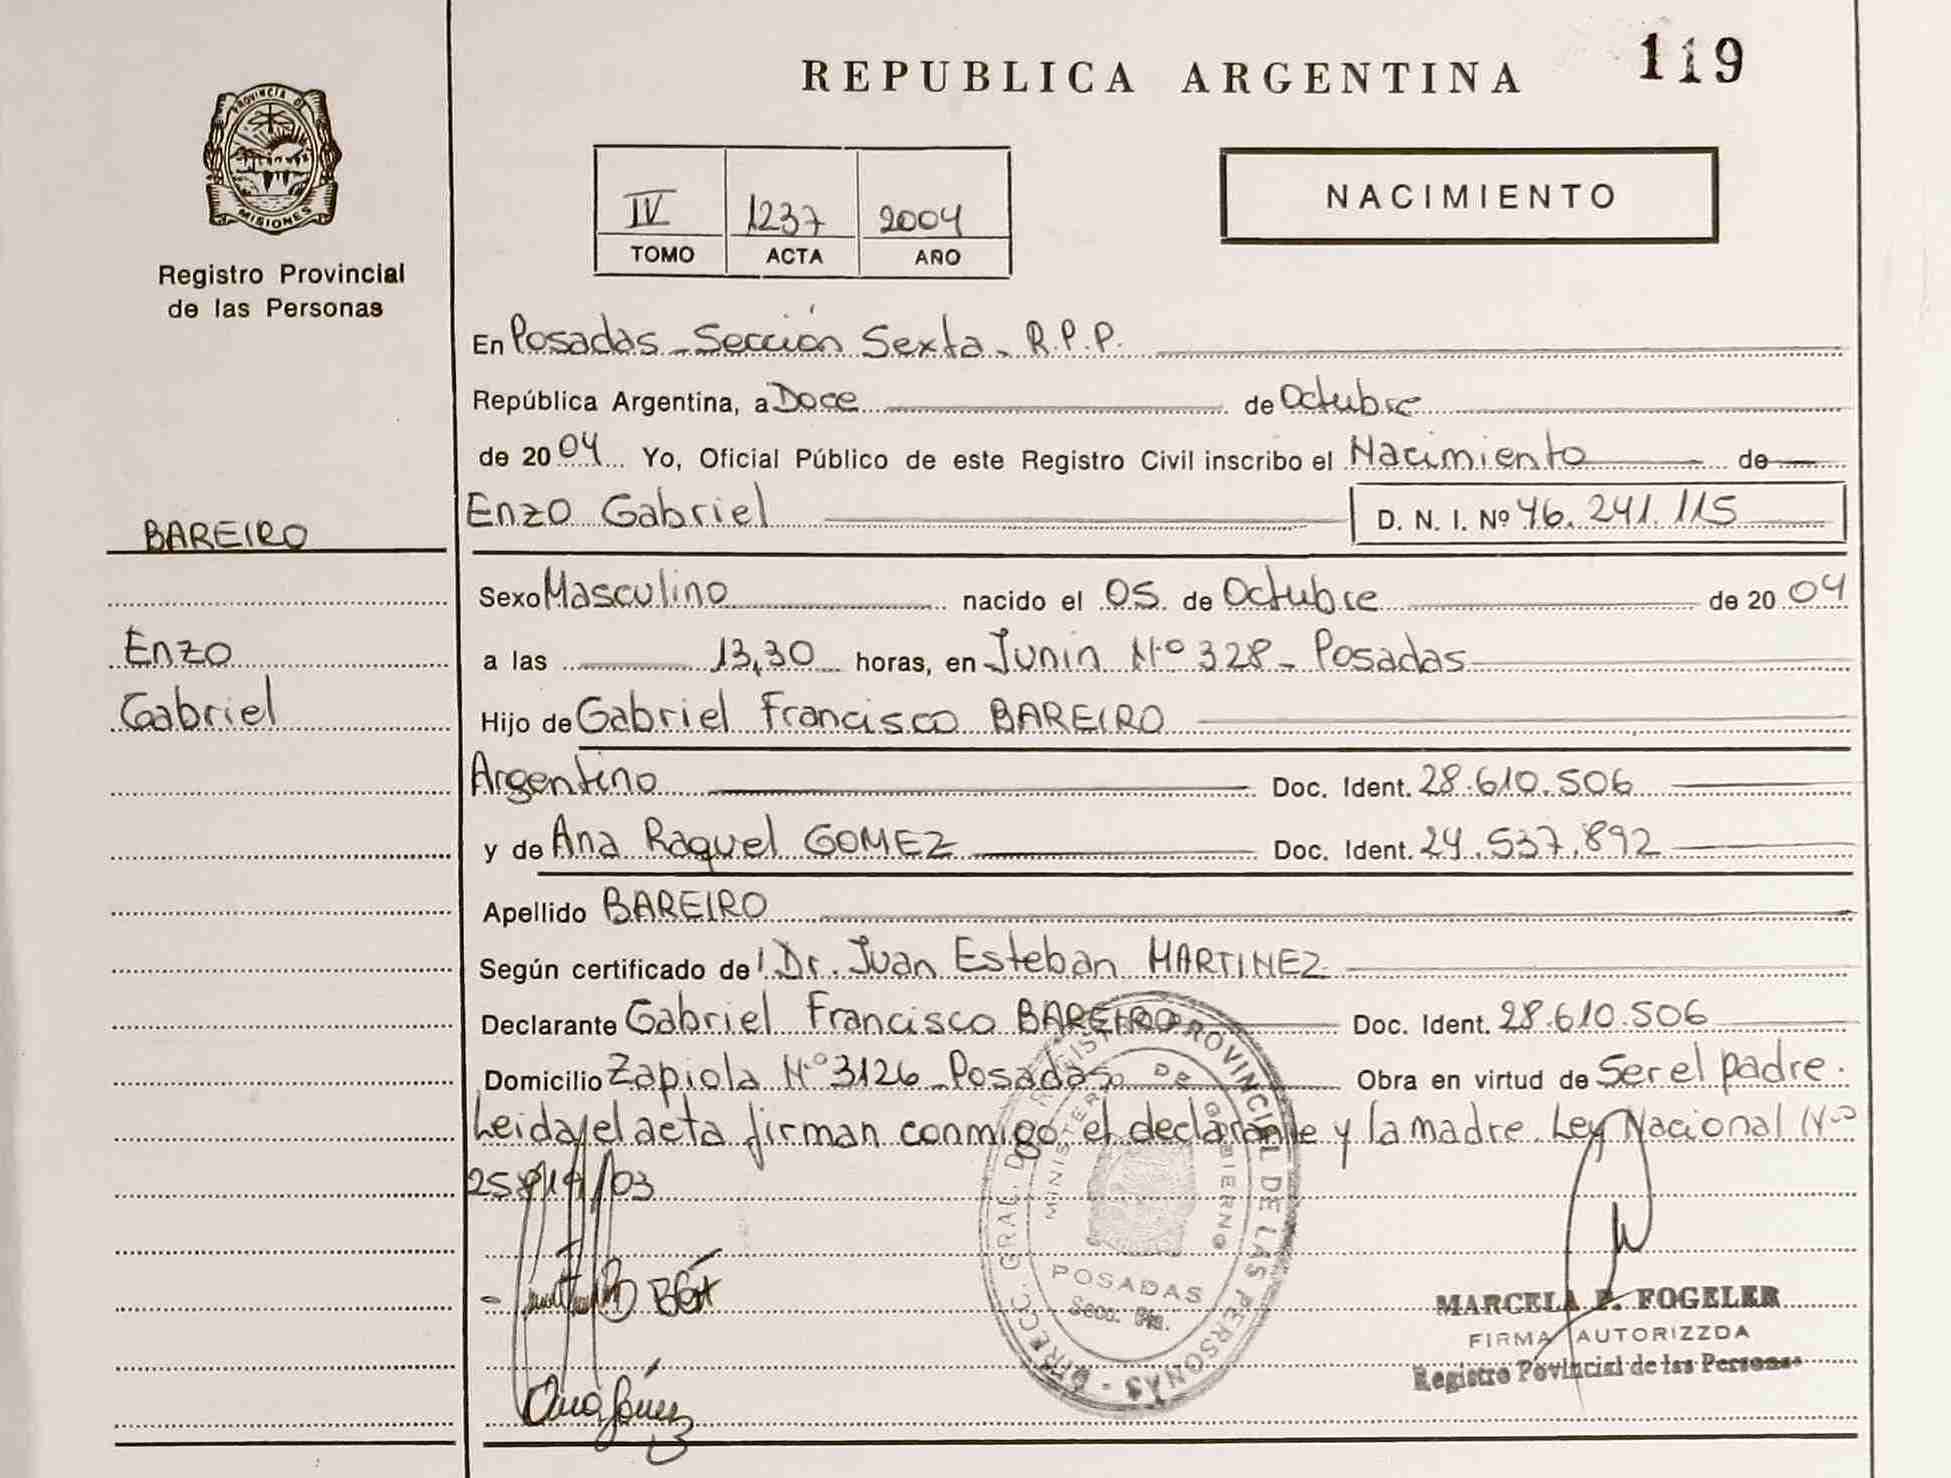 REPUBLICA ARGENTINA
119
PROVINCIA DE
MISIONES
Registro Provincial
de las Personas
IV 1237 2004
TOMO ACTA AÑO
NACIMIENTO
En Posadas - Sección Sexta - R.P.P.
República Argentina, a Doce de Octubre
de 2004 Yo, Oficial Público de este Registro Civil inscribo el Nacimiento de
BAREIRO
Enzo Gabriel D. N. I. Nº 46.241.115
Sexo Masculino nacido el 05 de Octubre de 2004
Enzo
a las 13,30 horas, en Junin Nº 328 - Posadas
Gabriel
Hijo de Gabriel Francisco BAREIRO
Argentino Doc. Ident. 28.610.506
y de Ana Raquel GOMEZ Doc. Ident. 24.537.892
Apellido BAREIRO
Según certificado de Dr. Juan Esteban MARTINEZ
Declarante Gabriel Francisco BAREIRO Doc. Ident. 28.610.506
Domicilio Zapiola Nº 3126 - Posadas Obra en virtud de Ser el padre.
Leida el acta firman conmigo el declarante y la madre. Ley Nacional Nº
/03
DIRECC. GRAL. DEL REGISTRO PROVINCIAL DE LAS PERSONAS
MINISTERIO DE GOBIERNO
POSADAS
Secc. 6ta.
Ana Gómez
MARCELA FOGELER
FIRMA AUTORIZZDA
Registro Povincial de las Personas